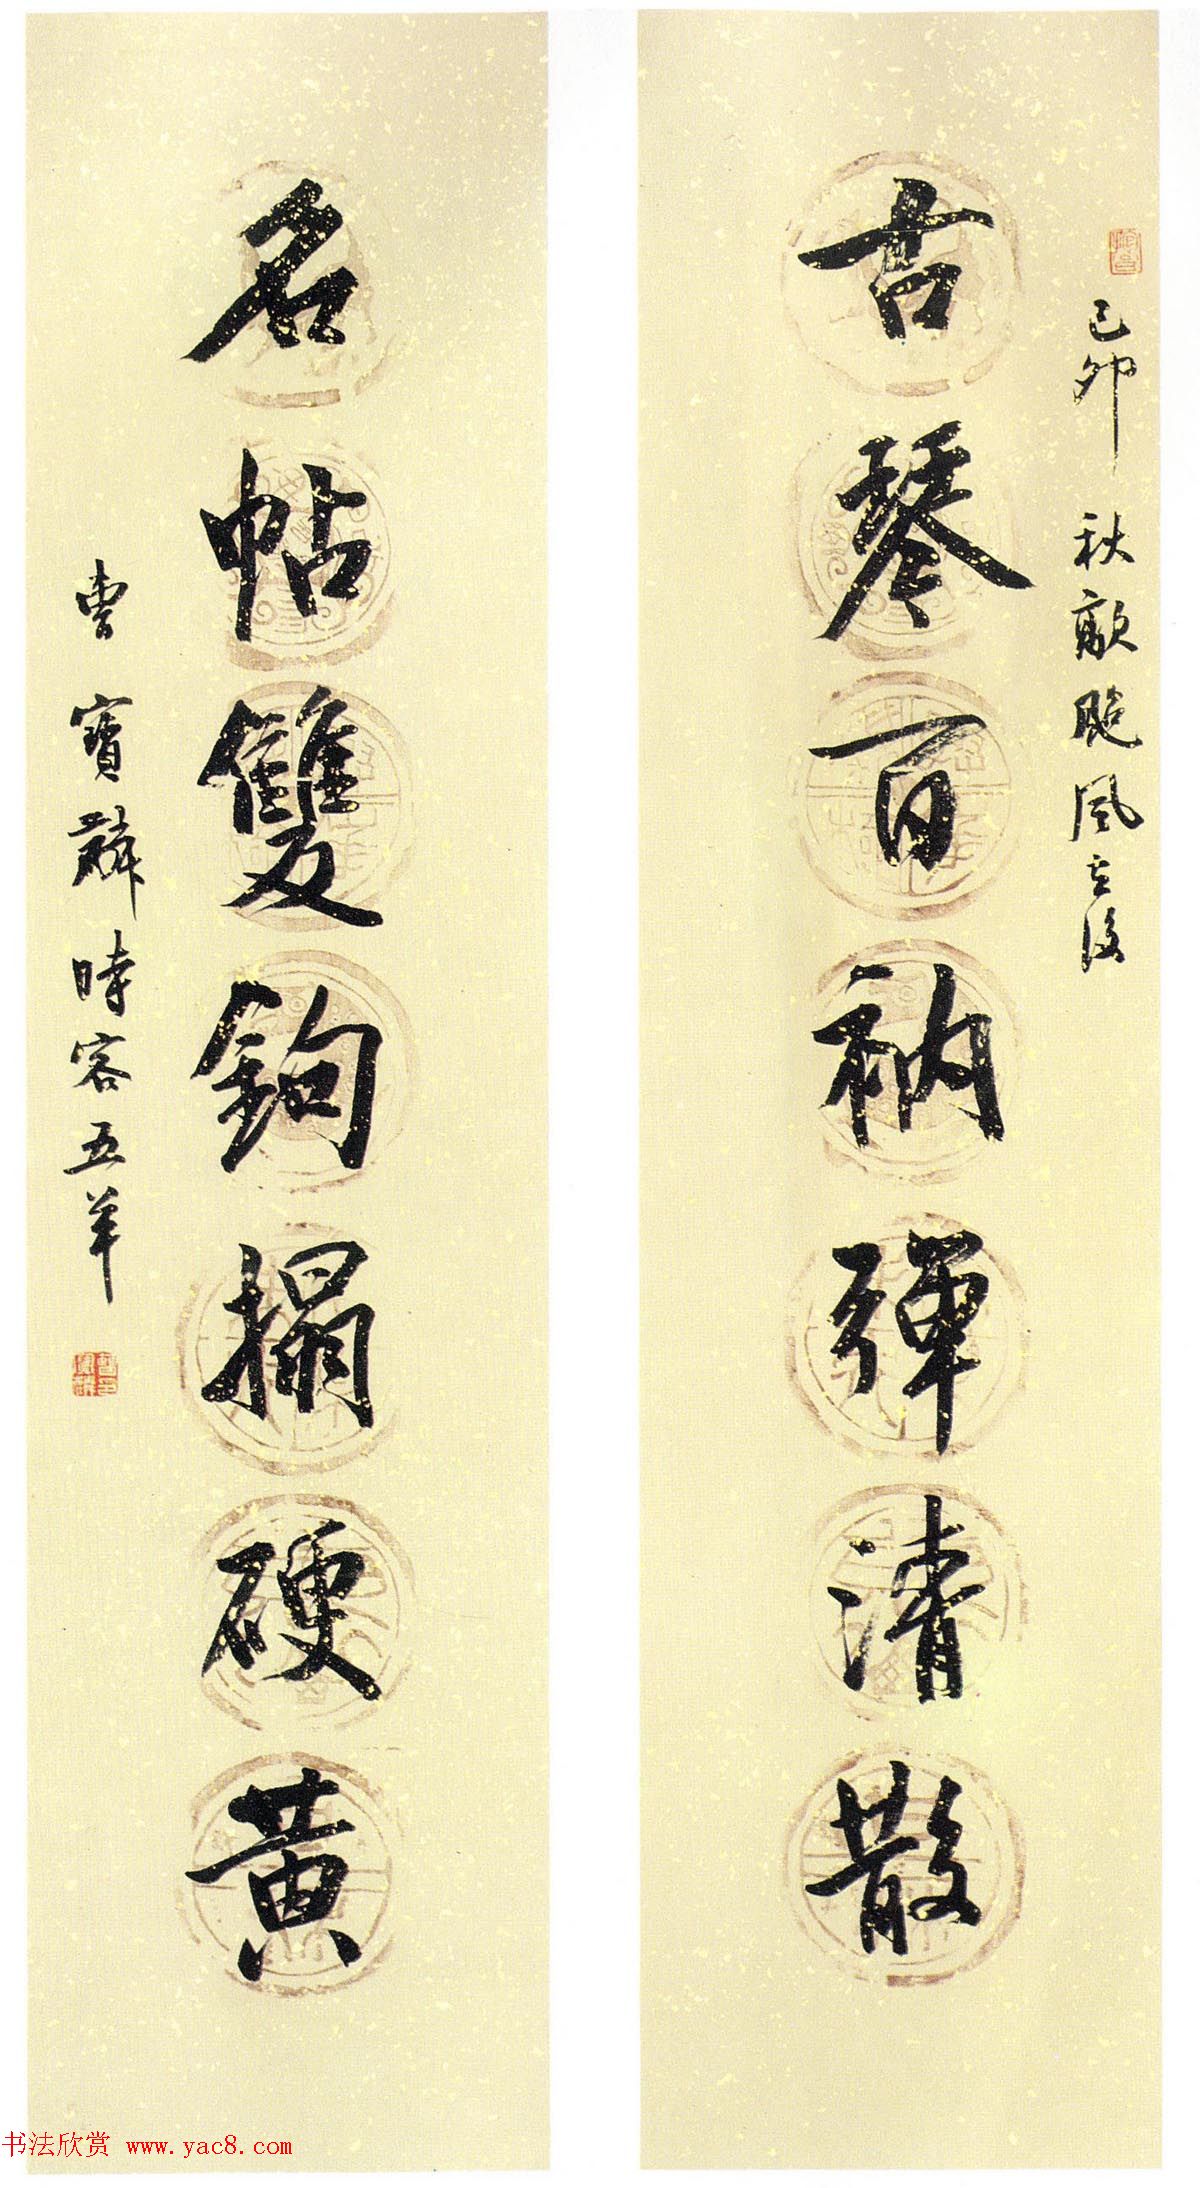 己卯秋敵颱風之後
古琴百衲彈清散
名帖雙鉤搨硬黃
曹寶麟時客五羊
书法欣赏 www.yac8.com